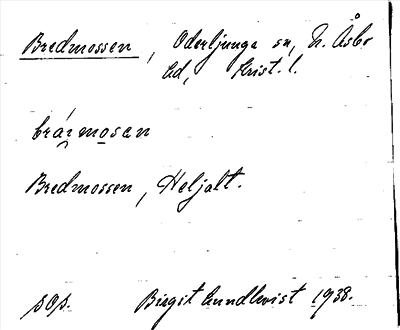 Bredmossen, Oderljunga sn, N. Åsbo
hd, Krist. l.
bràrmosan
Bredmossen, Heljalt.
sos. Birgit Lundkvist 1938.